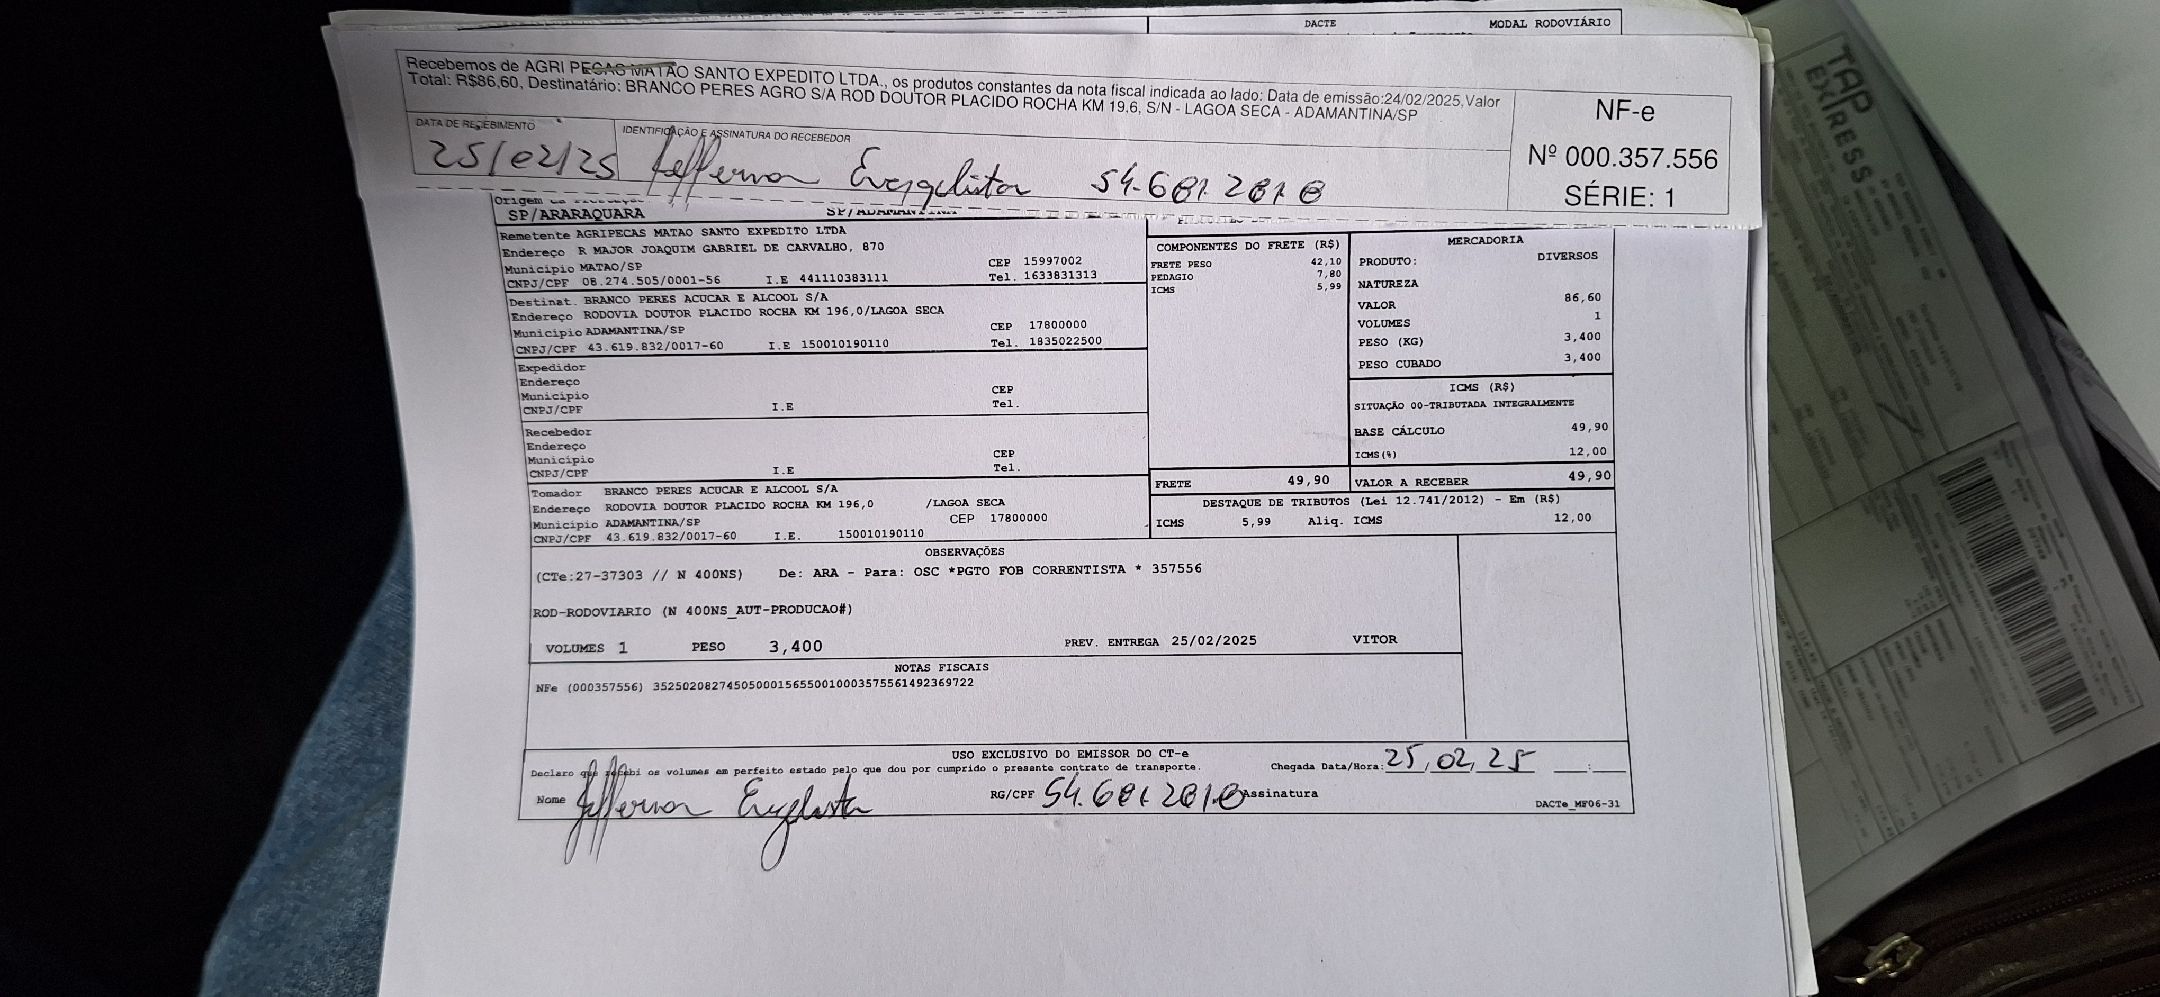 DACTE MODAL RODOVIÁRIO
Recebemos de AGRI PECAS MATAO SANTO EXPEDITO LTDA., os produtos constantes da nota fiscal indicada ao lado: Data de emissão:24/02/2025,Valor
Total: R$86,60, Destinatário: BRANCO PERES AGRO S/A ROD DOUTOR PLACIDO ROCHA KM 19,6, S/N - LAGOA SECA - ADAMANTINA/SP
DATA DE RECEBIMENTO
25/02/25
IDENTIFICAÇÃO E ASSINATURA DO RECEBEDOR
Jefferson Evangelista 54.601.281.0
NF-e
Nº 000.357.556
SÉRIE: 1
Origem
SP/ARARAQUARA SP/ADAMANTINA
Remetente AGRIPECAS MATAO SANTO EXPEDITO LTDA
Endereço R MAJOR JOAQUIM GABRIEL DE CARVALHO, 870
Município MATAO/SP CEP 15997002
CNPJ/CPF 08.274.505/0001-56 I.E 441110383111 Tel. 1633831313
Destinat. BRANCO PERES ACUCAR E ALCOOL S/A
Endereço RODOVIA DOUTOR PLACIDO ROCHA KM 196,0/LAGOA SECA
Município ADAMANTINA/SP CEP 17800000
CNPJ/CPF 43.619.832/0017-60 I.E 150010190110 Tel. 1835022500
Expedidor
Endereço
Município CEP
CNPJ/CPF I.E Tel.
Recebedor
Endereço
Município CEP
CNPJ/CPF I.E Tel.
Tomador BRANCO PERES ACUCAR E ALCOOL S/A
Endereço RODOVIA DOUTOR PLACIDO ROCHA KM 196,0 /LAGOA SECA
Município ADAMANTINA/SP CEP 17800000
CNPJ/CPF 43.619.832/0017-60 I.E. 150010190110
COMPONENTES DO FRETE (R$)
FRETE PESO 42,10
PEDAGIO 7,80
ICMS 5,99
MERCADORIA
PRODUTO: DIVERSOS
NATUREZA
VALOR 86,60
VOLUMES 1
PESO (KG) 3,400
PESO CUBADO 3,400
ICMS (R$)
SITUAÇÃO 00-TRIBUTADA INTEGRALMENTE
BASE CÁLCULO 49,90
ICMS(%) 12,00
FRETE 49,90 VALOR A RECEBER 49,90
DESTAQUE DE TRIBUTOS (Lei 12.741/2012) - Em (R$)
ICMS 5,99 Aliq. ICMS 12,00
OBSERVAÇÕES
(CTe:27-37303 // N 400NS) De: ARA - Para: OSC *PGTO FOB CORRENTISTA * 357556
ROD-RODOVIARIO (N 400NS_AUT-PRODUCAO#)
VOLUMES 1 PESO 3,400 PREV. ENTREGA 25/02/2025 VITOR
NOTAS FISCAIS
NFe (000357556) 35250208274505000156550010003575561492369722
USO EXCLUSIVO DO EMISSOR DO CT-e
Declaro que recebi os volumes em perfeito estado pelo que dou por cumprido o presente contrato de transporte. Chegada Data/Hora: 25/02/25 __:__
Nome Jefferson Evangelista RG/CPF 54.601.281.0 Assinatura
DACTe_MF06-31
TAP
EXPRESS